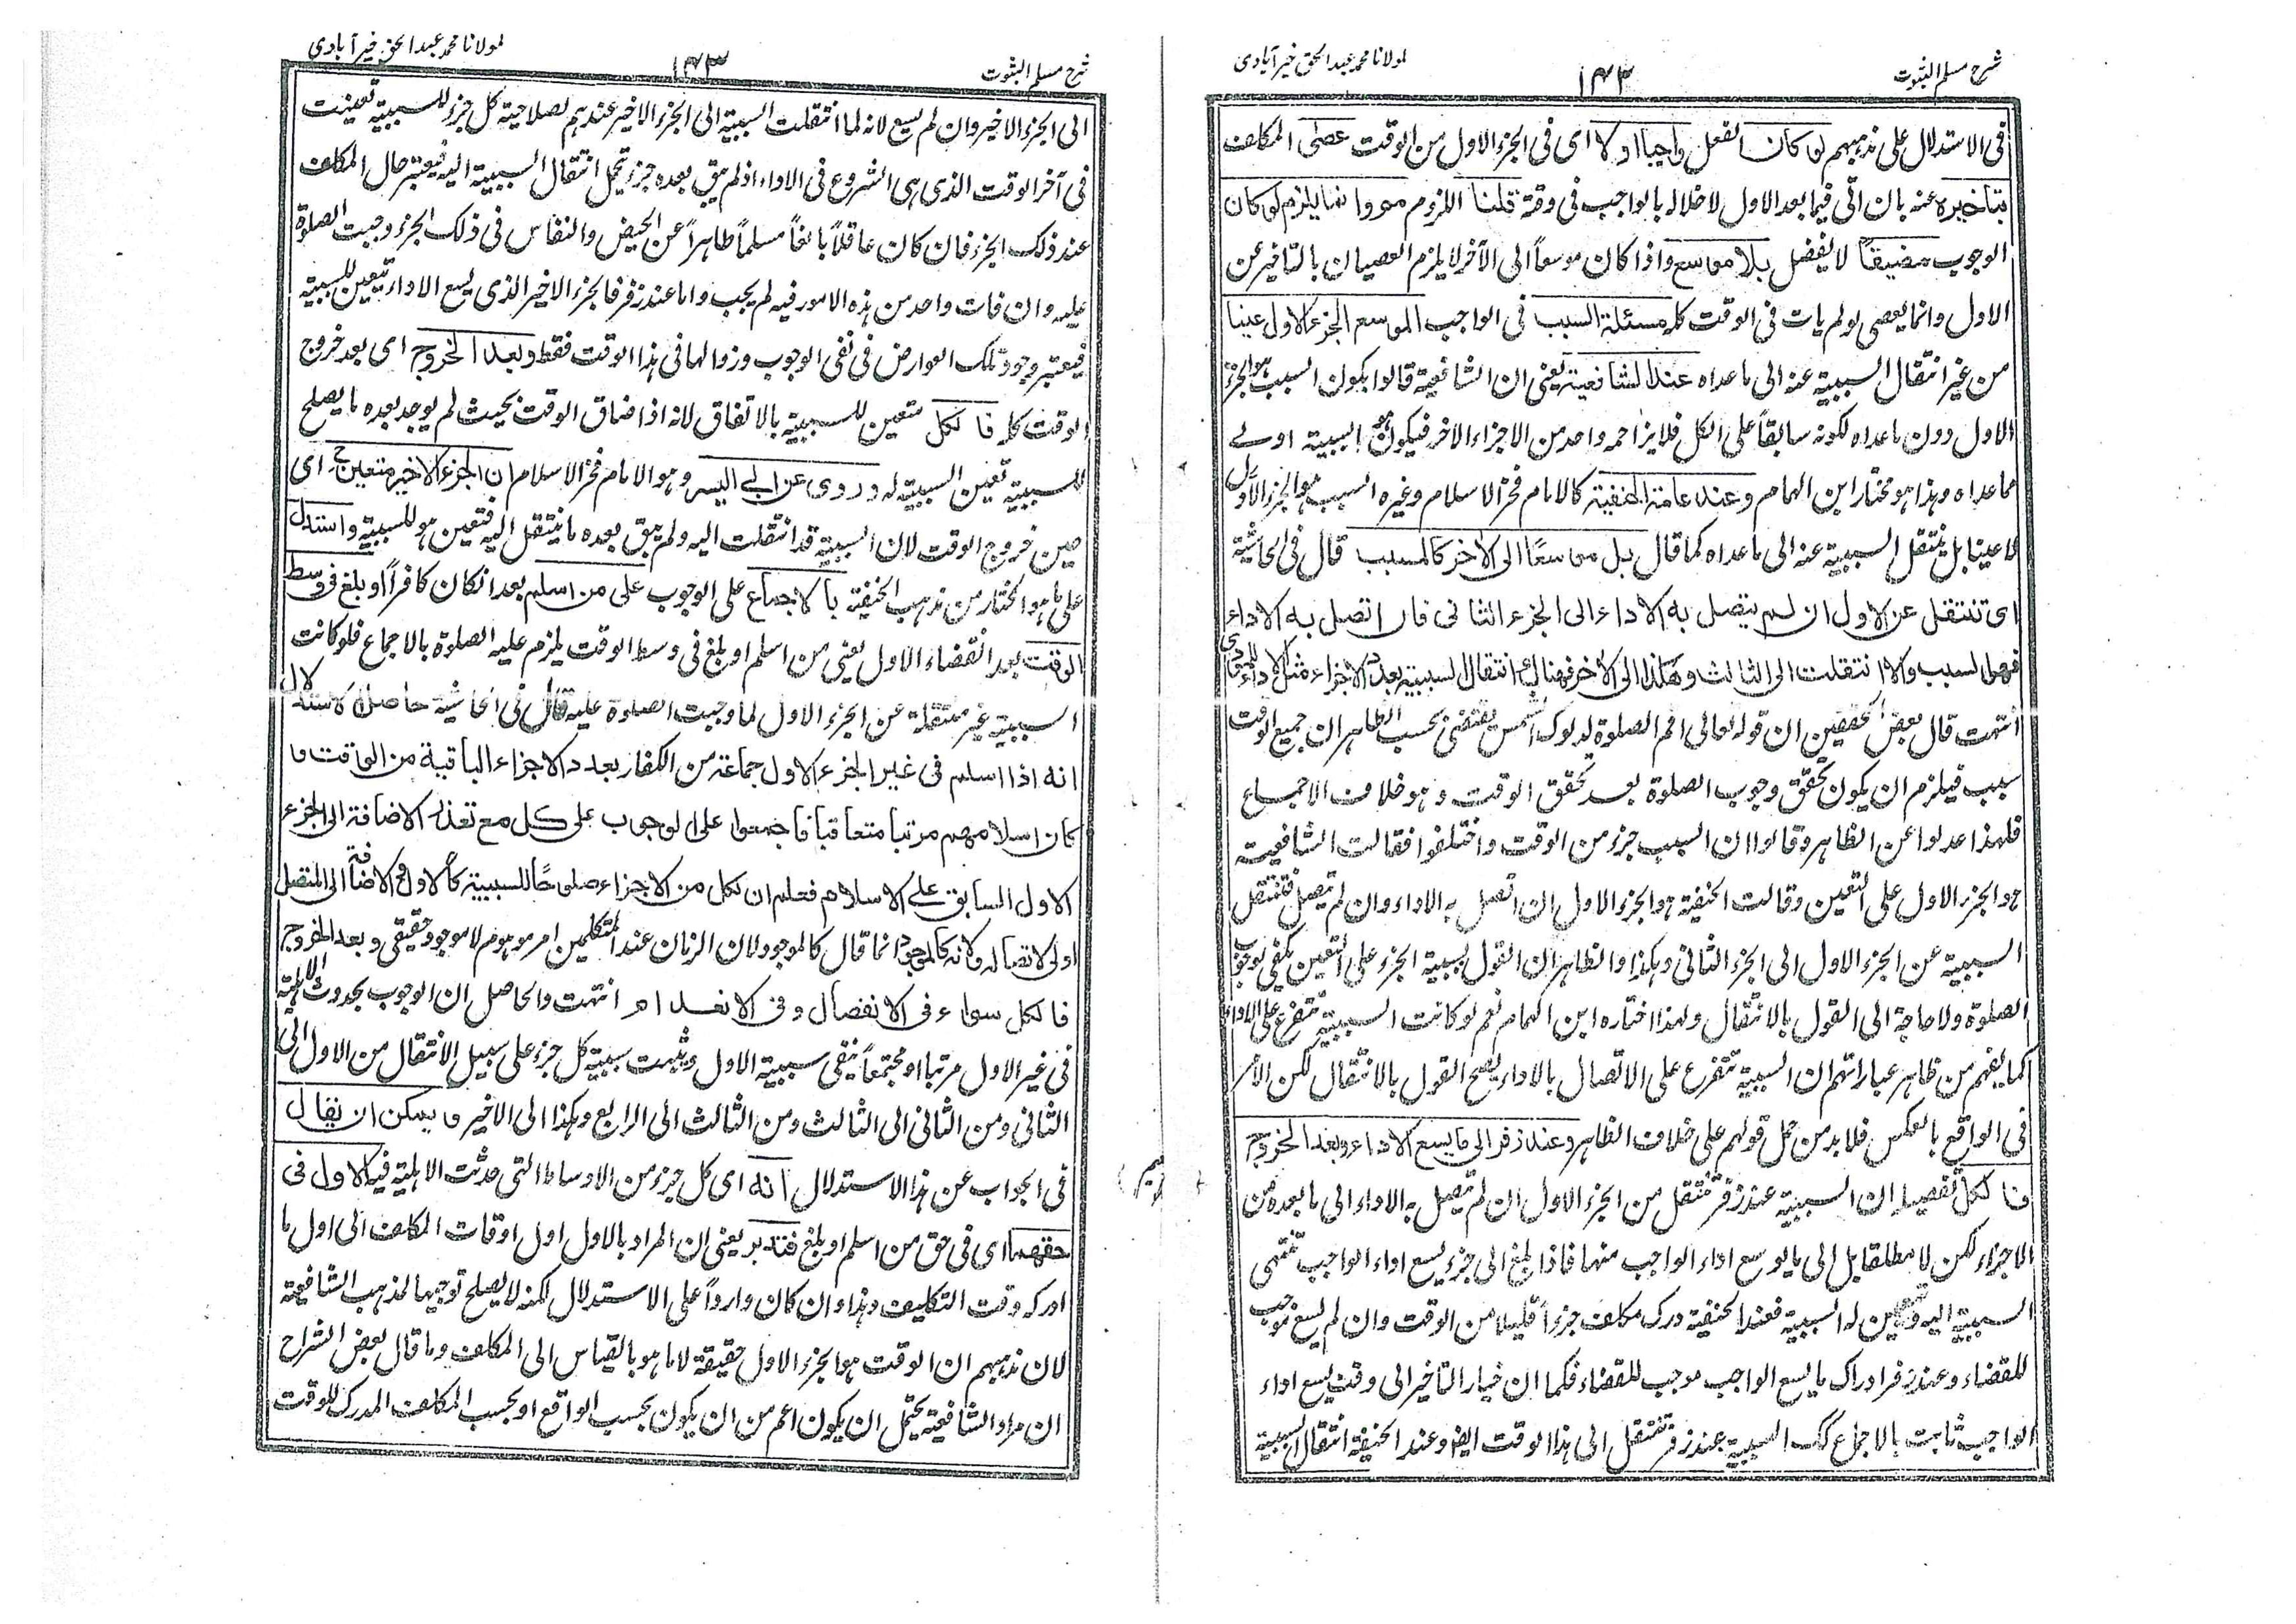 شرح مسلم الثبوت
۱۴۲
لمولانا محمد عبد الحق خیرآبادی
فی الاستدلال علی مذہبہم لو کان الفعل واجبا اولا ای فی الجزء الاول من الوقت عصی المکلف
بتاخیرہ عنہ بان اتی فیما بعد الاول لاخلالہ بالواجب فی وقتہ قلنا اللزوم مم وانما یلزم لو کان
الوجوب مضیقاً لا یفضل بلا موسع واذا کان موسعاً الی الآخر لا یلزم العصیان بالتاخیر عن
الاول وانما یعصی لو لم یات فی الوقت کلہ مسئلۃ السبب فی الواجب الموسع الجزء الاول عینا
من غیر انتقال السببیۃ عنہ الی ما عداہ عند الشافعیۃ یعنی ان الشافعیۃ قالوا یکون السبب ہو الجزء
الاول دون ما عداہ لکونہ سابقاً علی الکل فلا یزاحمہ واحد من الاجزاء الاخر فیکون ہو السببیۃ اولے
مما عداہ وہذا ہو مختار ابن الہمام وعند عامۃ الحنفیۃ کالامام فخر الاسلام وغیرہ السبب ہو الجزء الاول
لا عینا بل ینتقل السببیۃ عنہ الی ما عداہ کما قال بل موسعًا الی الاخر کالمسبب قال فی الحاشیۃ
ای تنتقل عن الاول ان لم یتصل بہ الاداء الی الجزء الثانی فان اتصل بہ الاداء
فہو السبب والا انتقلت الی الثالث وھکذا الی الاخر فہناک انتقال السببیۃ بعدد الاجزاء مثل الاداء
انتہت قال بعض المحققین ان قولہ تعالی اقم الصلوۃ لدلوک الشمس یقتضی بحسب الظاہر ان جمیع الوقت
سبب فیلزم ان یکون تحقق وجوب الصلوۃ بعد تحقق الوقت وہو خلاف الاجماع
فلہذا عدلوا عن الظاہر وقالوا ان السبب جزء من الوقت واختلفوا فقالت الشافعیۃ
ہو الجزء الاول علی التعین وقالت الحنفیۃ ہو الجزء الاول ان اتصل بہ الاداء وان لم یتصل فتنتقل
السببیۃ عن الجزء الاول الی الجزء الثانی وہکذا والظاہر ان القول بسببیۃ الجزء علی التعین یکفی لوجوب
الصلوۃ ولا حاجۃ الی القول بالانتقال ولہذا اختارہ ابن الہمام نعم لو کانت السببیۃ تتفرع علی الاداء
کما یفہم من ظاہر عباراتہم ان السببیۃ تتفرع علی الاتصال بالاداء یصح القول بالانتقال لکن الامر
فی الواقع بالعکس فلا بد من حمل قولہم علی خلاف الظاہر وعند زفر الی ما یسع الاداء وبعد الخروج
فالکل تفصیلہ ان السببیۃ عند زفر تنتقل من الجزء الاول ان لم یتصل بہ الاداء الی ما بعدہ من
الاجزاء لکن لا مطلقا بل الی ما یوسع اداء الواجب منہا فاذا بلغ الی جزء یسع اداء الواجب تنتہی
السببیۃ الیہ وتعین لہ السببیۃ فعند الحنفیۃ درک مکلف جزءاً قلیلا من الوقت وان لم یسع موجب
للقضاء وعند زفر ادراک ما یسع الواجب موجب للقضاء فکما ان خیار التاخیر الی وقت یسع اداء
الواجب ثابت بالاجماع کک السببیۃ عند زفر تنتقل الی ہذا الوقت ایضا وعند الحنفیۃ انتقال السببیۃ
شرح مسلم الثبوت
۱۴۳
لمولانا محمد عبد الحق خیرآبادی
الی الجزء الاخیر وان لم یسع لانہ لما انتقلت السببیۃ الی الجزء الاخیر عندہم لصلاحیۃ کل جزء للسببیۃ تعینت
فی آخر الوقت الذی ہی الشروع فی الاداء اذ لم یبق بعدہ جزء یحتمل انتقال السببیۃ الیہ فیعتبر حال المکلف
عند ذلک الجزء فان کان عاقلاً بالغاً مسلماً طاہراً عن الحیض والنفاس فی ذلک الجزء وجبت الصلوۃ
علیہ وان فات واحد من ہذہ الامور فیہ لم یجب واما عند زفر فالجزء الاخیر الذی یسع الاداء تتعین للسببیۃ
فیعتبر وجود تلک العوارض فی نفی الوجوب وزوالہا فی ہذا الوقت فقط وبعد الخروج ای بعد خروج
الوقت کلہ فالکل متعین للسببیۃ بالاتفاق لانہ اذا ضاق الوقت بحیث لم یوجد بعدہ ما یصلح
للسببیۃ تعین السببیۃ لہ وروی عن ابی الیسر وہو الامام فخر الاسلام ان الجزء الاخیر متعین ح ای
حین خروج الوقت لان السببیۃ قد انتقلت الیہ ولم یبق بعدہ ما ینتقل الیہ فتعین ہو للسببیۃ واستدل
علی ما ہو المختار من مذہب الحنفیۃ بالاجماع علی الوجوب علی من اسلم بعد ان کان کافراً او بلغ فی وسط
الوقت بعد انقضاء الاول یعنی من اسلم او بلغ فی وسط الوقت یلزم علیہ الصلوۃ بالاجماع فلو کانت
السببیۃ غیر منتقلۃ عن الجزء الاول لما وجبت الصلوۃ علیہ قال فی الحاشیۃ حاصل الاستدلال
انہ اذا اسلم فی غیر الجزء الاول جماعۃ من الکفار بعدد الاجزاء الباقیۃ من الوقت وا
کان اسلامہم مرتبا متعاقبا فاجمعوا علی الوجوب علی کل مع تعذر الاضافۃ الی الجزء
الاول السابق علی الاسلام فعلم ان لکل من الاجزاء صلوحًا للسببیۃ کالاول فح الاضافۃ الی المتصل
اولی لاتصالہ ولانہ کالموجود انما قال کالموجود لان الزمان عند المتکلمین امر موہوم لا موجود حقیقی وبعد الخروج
فالکل سواء فی الانفصال وفی الانعدام انتہت والحاصل ان الوجوب بحدوث الاہلیۃ
فی غیر الاول مرتبا او مجتمعاً ینفی سببیۃ الاول ویثبت سببیۃ کل جزء علی سبیل الانتقال من الاول الی
الثانی ومن الثانی الی الثالث ومن الثالث الی الرابع وہکذا الی الاخیر ویمکن ان یقال
فی الجواب عن ہذا الاستدلال انہ ای کل جزء من الاوساط التی حدثت الاہلیۃ فیہ کالاول فی
حقہما ای فی حق من اسلم او بلغ فتدبر یعنی ان المراد بالاول اول اوقات المکلف الی اول ما
ادرکہ وقت التکلیف وہذا وان کان وارداً علی الاستدلال لکنہ لا یصلح توجیہا لمذہب الشافعیۃ
لان مذہبہم ان الوقت ہو الجزء الاول حقیقۃ لا ما ہو بالقیاس الی المکلف وما قال بعض الشراح
ان مراد الشافعیۃ یحتمل ان یکون اعم من ان یکون بحسب الواقع او بحسب المکلف المدرک للوقت